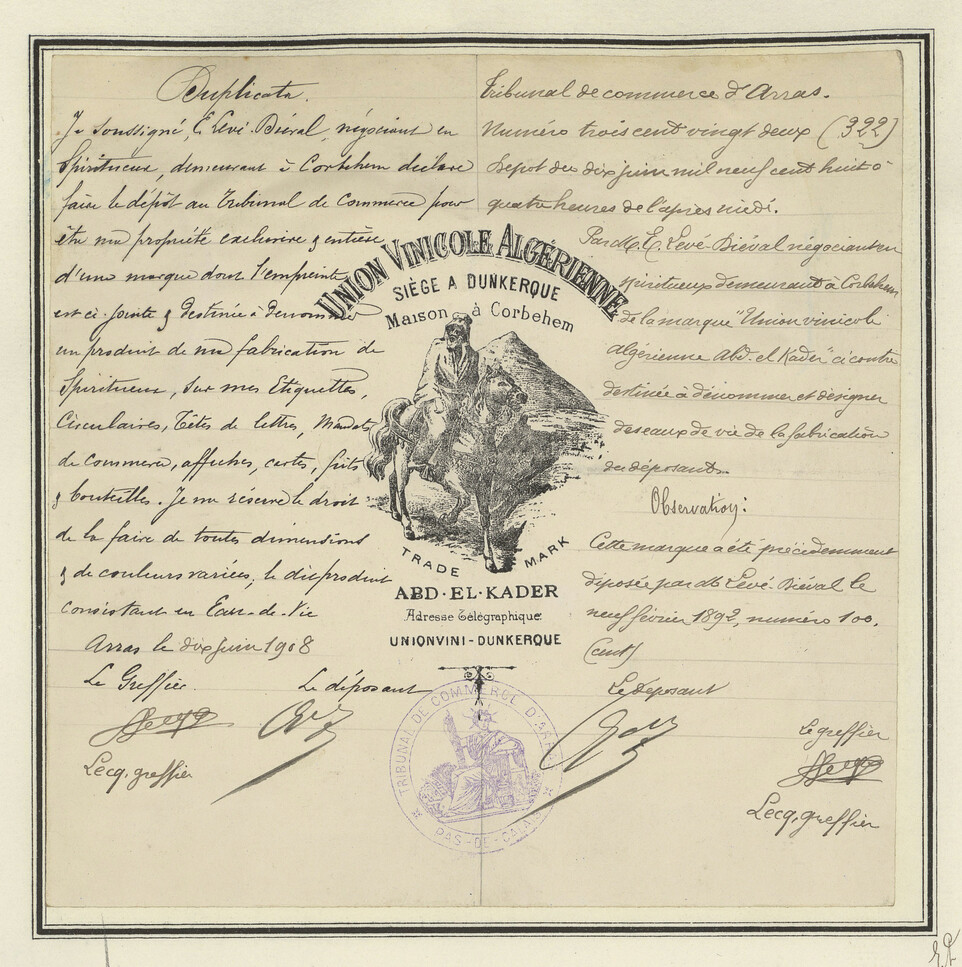 Duplicata.
Je soussigné, E. Levé-Biéval, négociant en
Spiritueux, demeurant à Corbehem déclare
faire le dépôt au Tribunal de Commerce pour
être ma propriété exclusive & entière
d'une marque dont l'empreinte
est ci-jointe & Destinée à Dénommer
un produit de ma fabrication de
Spiritueux, sur mes Etiquettes,
Circulaires, Têtes de lettres, Mandats
de Commerce, affiches, cartes, fûts
& bouteilles. Je me réserve le droit
de la faire de toutes dimensions
& de couleurs variées, le dit produit
consistant en Eau-de-Vie
Arras le dix juin 1908
Le Greffier
Le déposant
Lecq. greffier
UNION VINICOLE ALGÉRIENNE
SIÈGE A DUNKERQUE
Maison à Corbehem
TRADE MARK
ABD-EL-KADER
Adresse Télégraphique:
UNIONVINI-DUNKERQUE
TRIBUNAL DE COMMERCE D'ARRAS
PAS-DE-CALAIS
Tribunal de commerce d'Arras.
Numéro trois cent vingt deux (322)
Dépôt du dix juin mil neuf cent huit à
quatre heures de l'après midi.
Par M. E. Levé-Biéval négociant en
spiritueux demeurant à Corbehem
de la marque "Union vinicole
algérienne Abd-el Kader" ci contre
destinée à dénommer et désigner
des eaux de vie de la fabrication
du déposant.
Observation:
Cette marque a été précédemment
déposée par M. Levé-Biéval le
neuf février 1892, numéro 100.
(cent)
Le déposant
Le greffier
Lecq, greffier